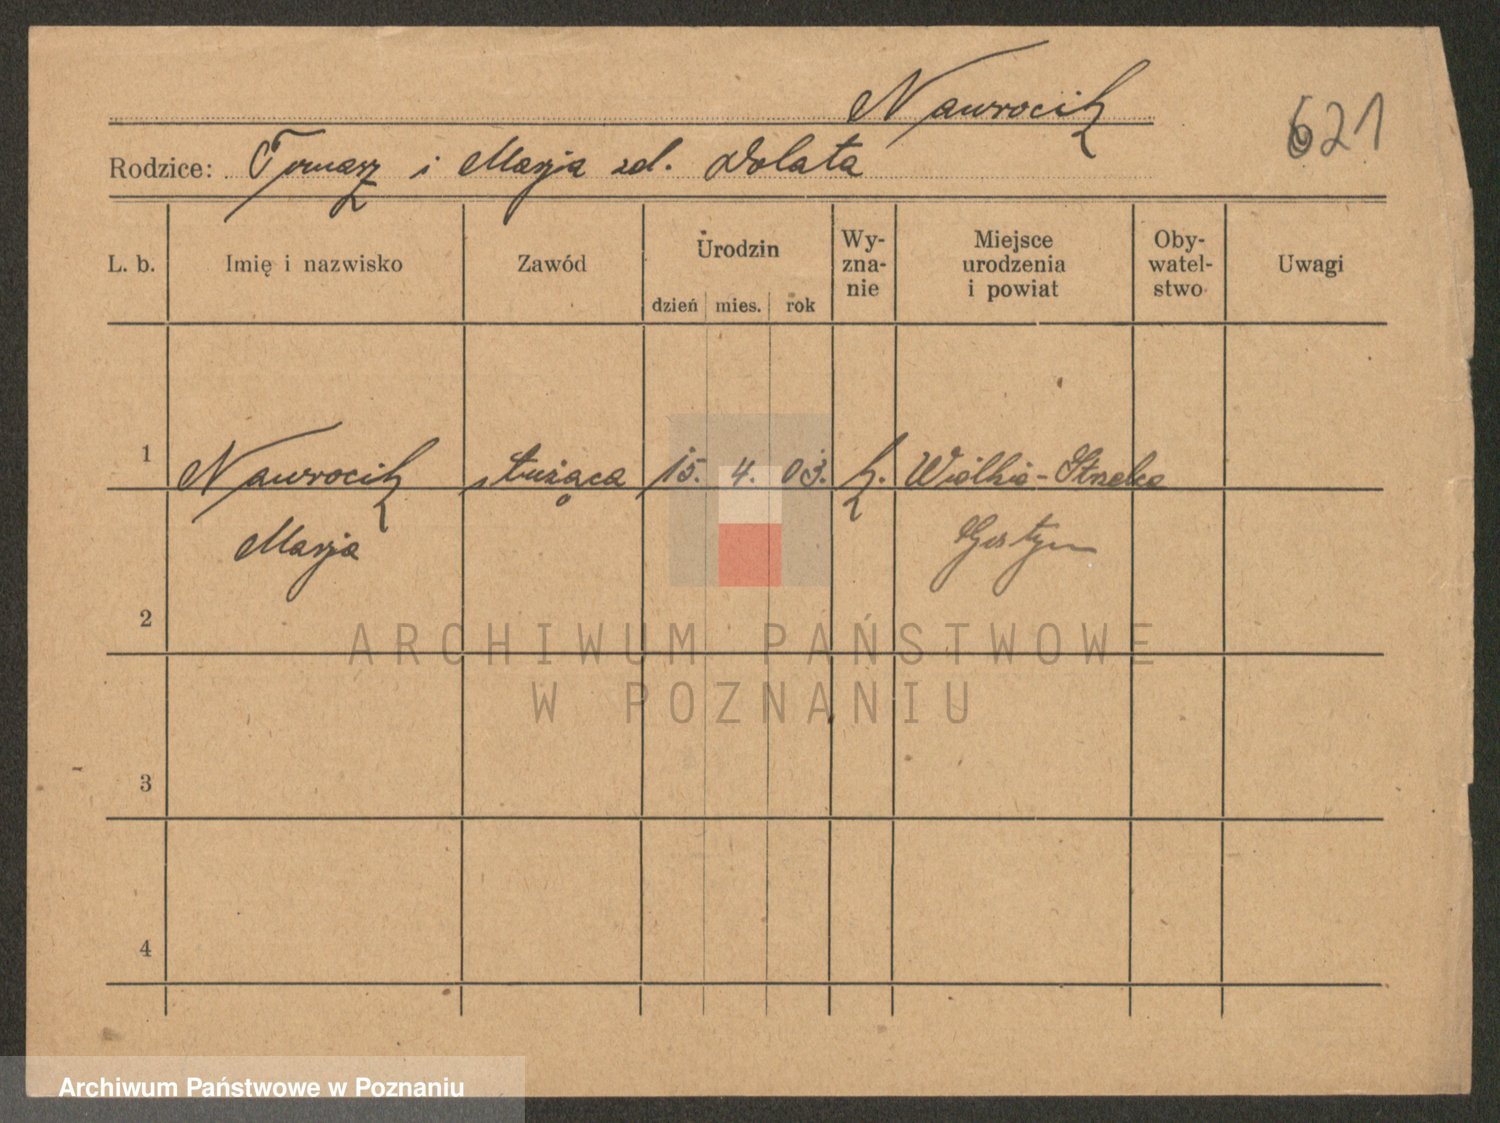 Nawrocik
621
Rodzice: Tomasz i Marja zd. Dolata
L. b.
Imię i nazwisko
Zawód
Urodzin
dzień mies. rok
Wy-
zna-
nie
Miejsce
urodzenia
i powiat
Oby-
watel-
stwo
Uwagi
1 Nawrocik służąca 15. 4. 03. k. Wielkie-Strzelce
Marja Gostyn
2
ARCHIWUM PAŃSTWOWE
W POZNANIU
3
4
Archiwum Państwowe w Poznaniu